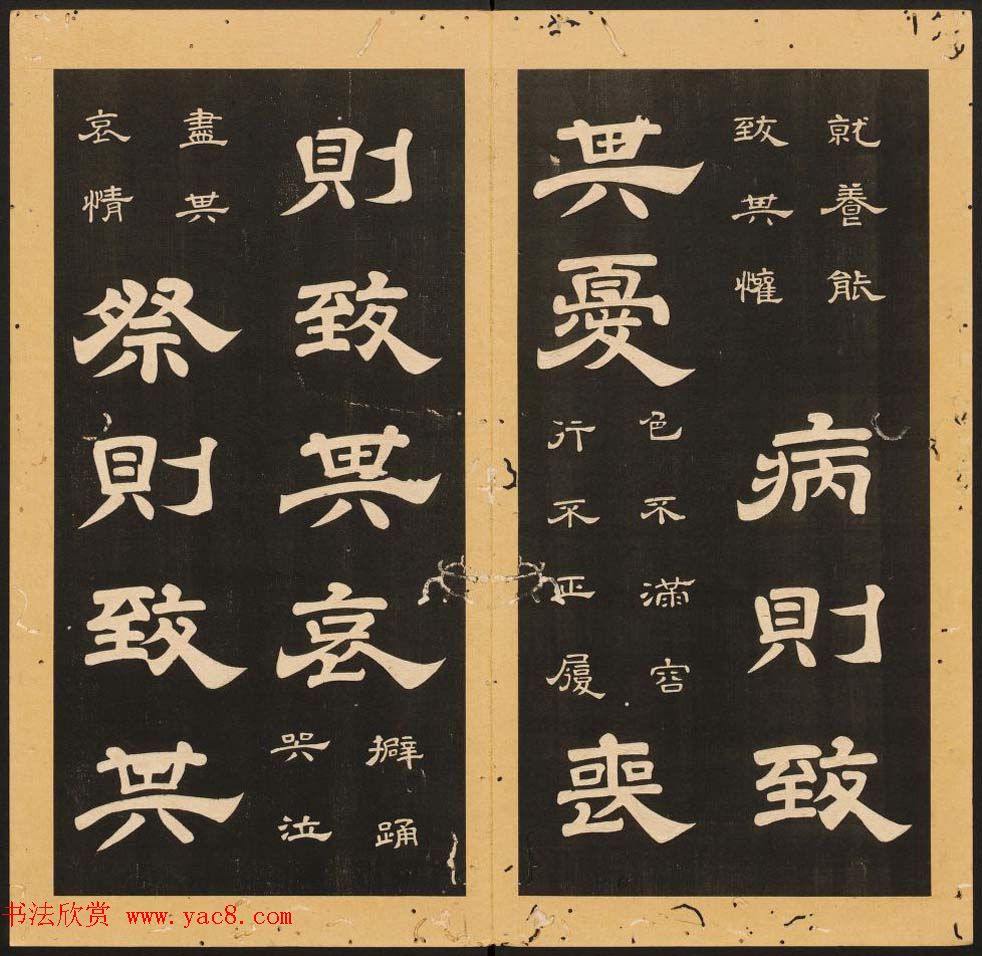 就養能
致其懽
病則致
其憂
色不滿容
行不正履
喪
則致其哀
擗踊
哭泣
盡其
哀情
祭則致其
书法欣赏 www.yac8.com